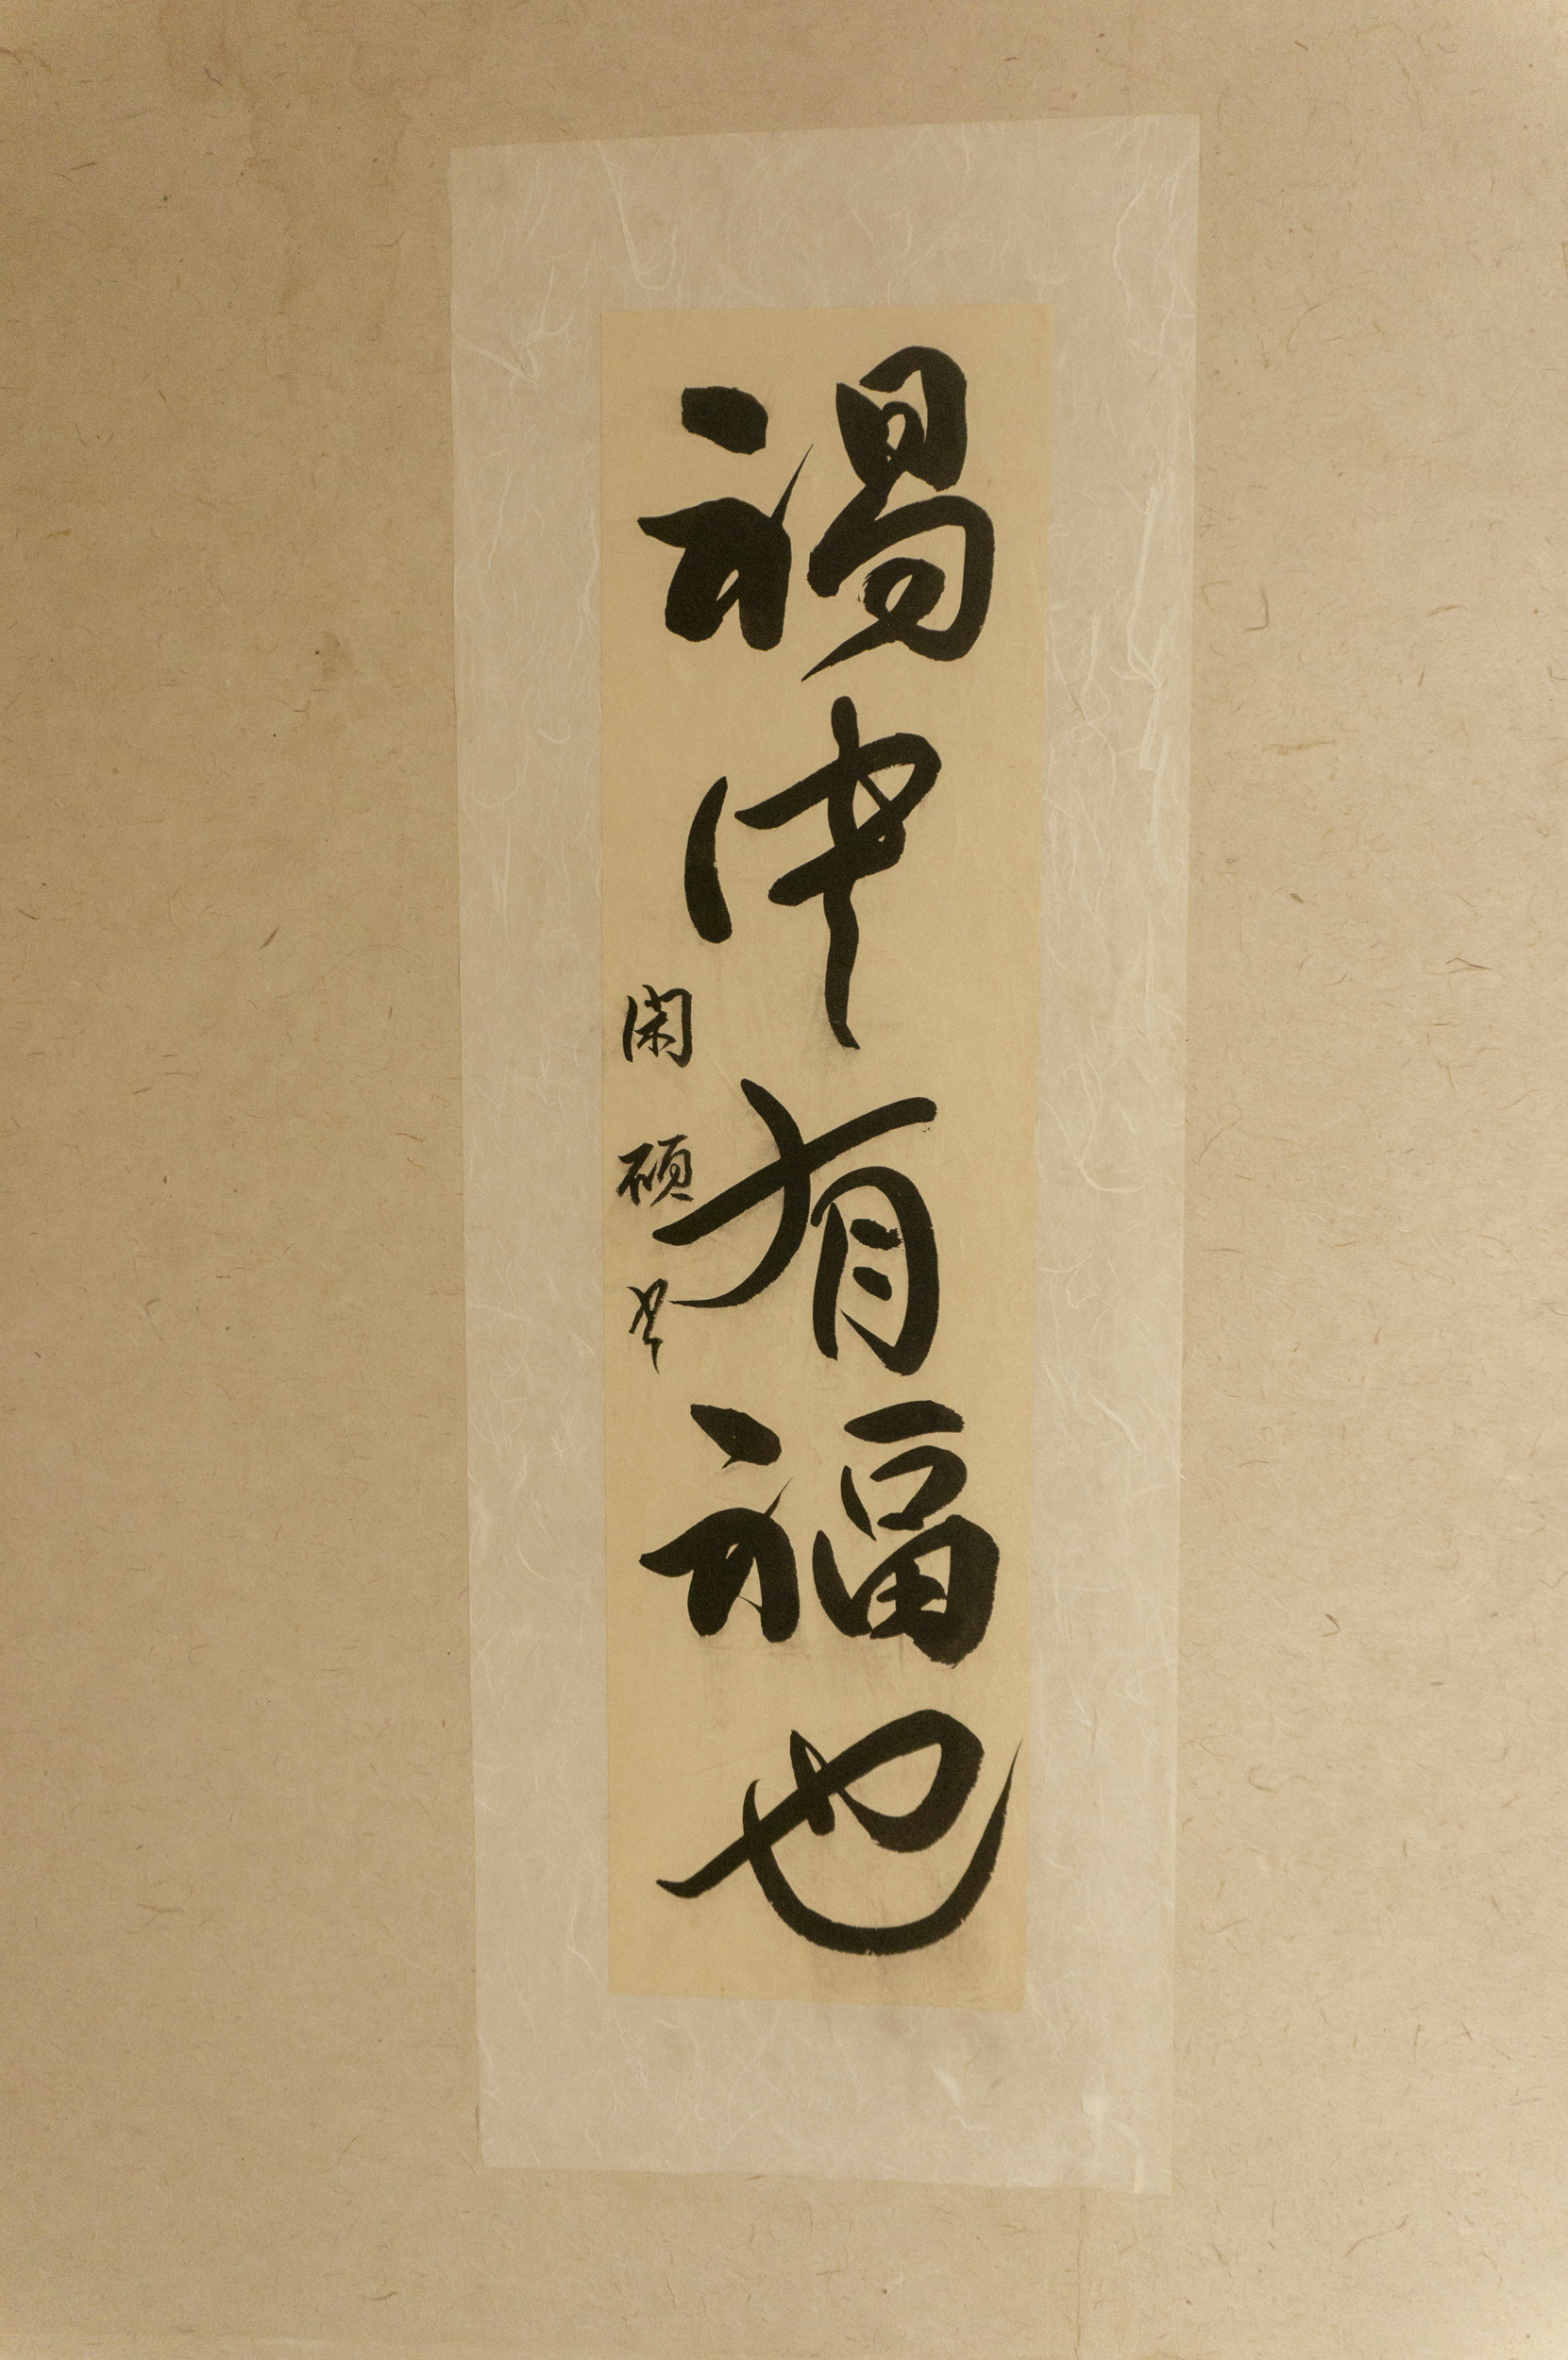 禍中有福也
閑碩書